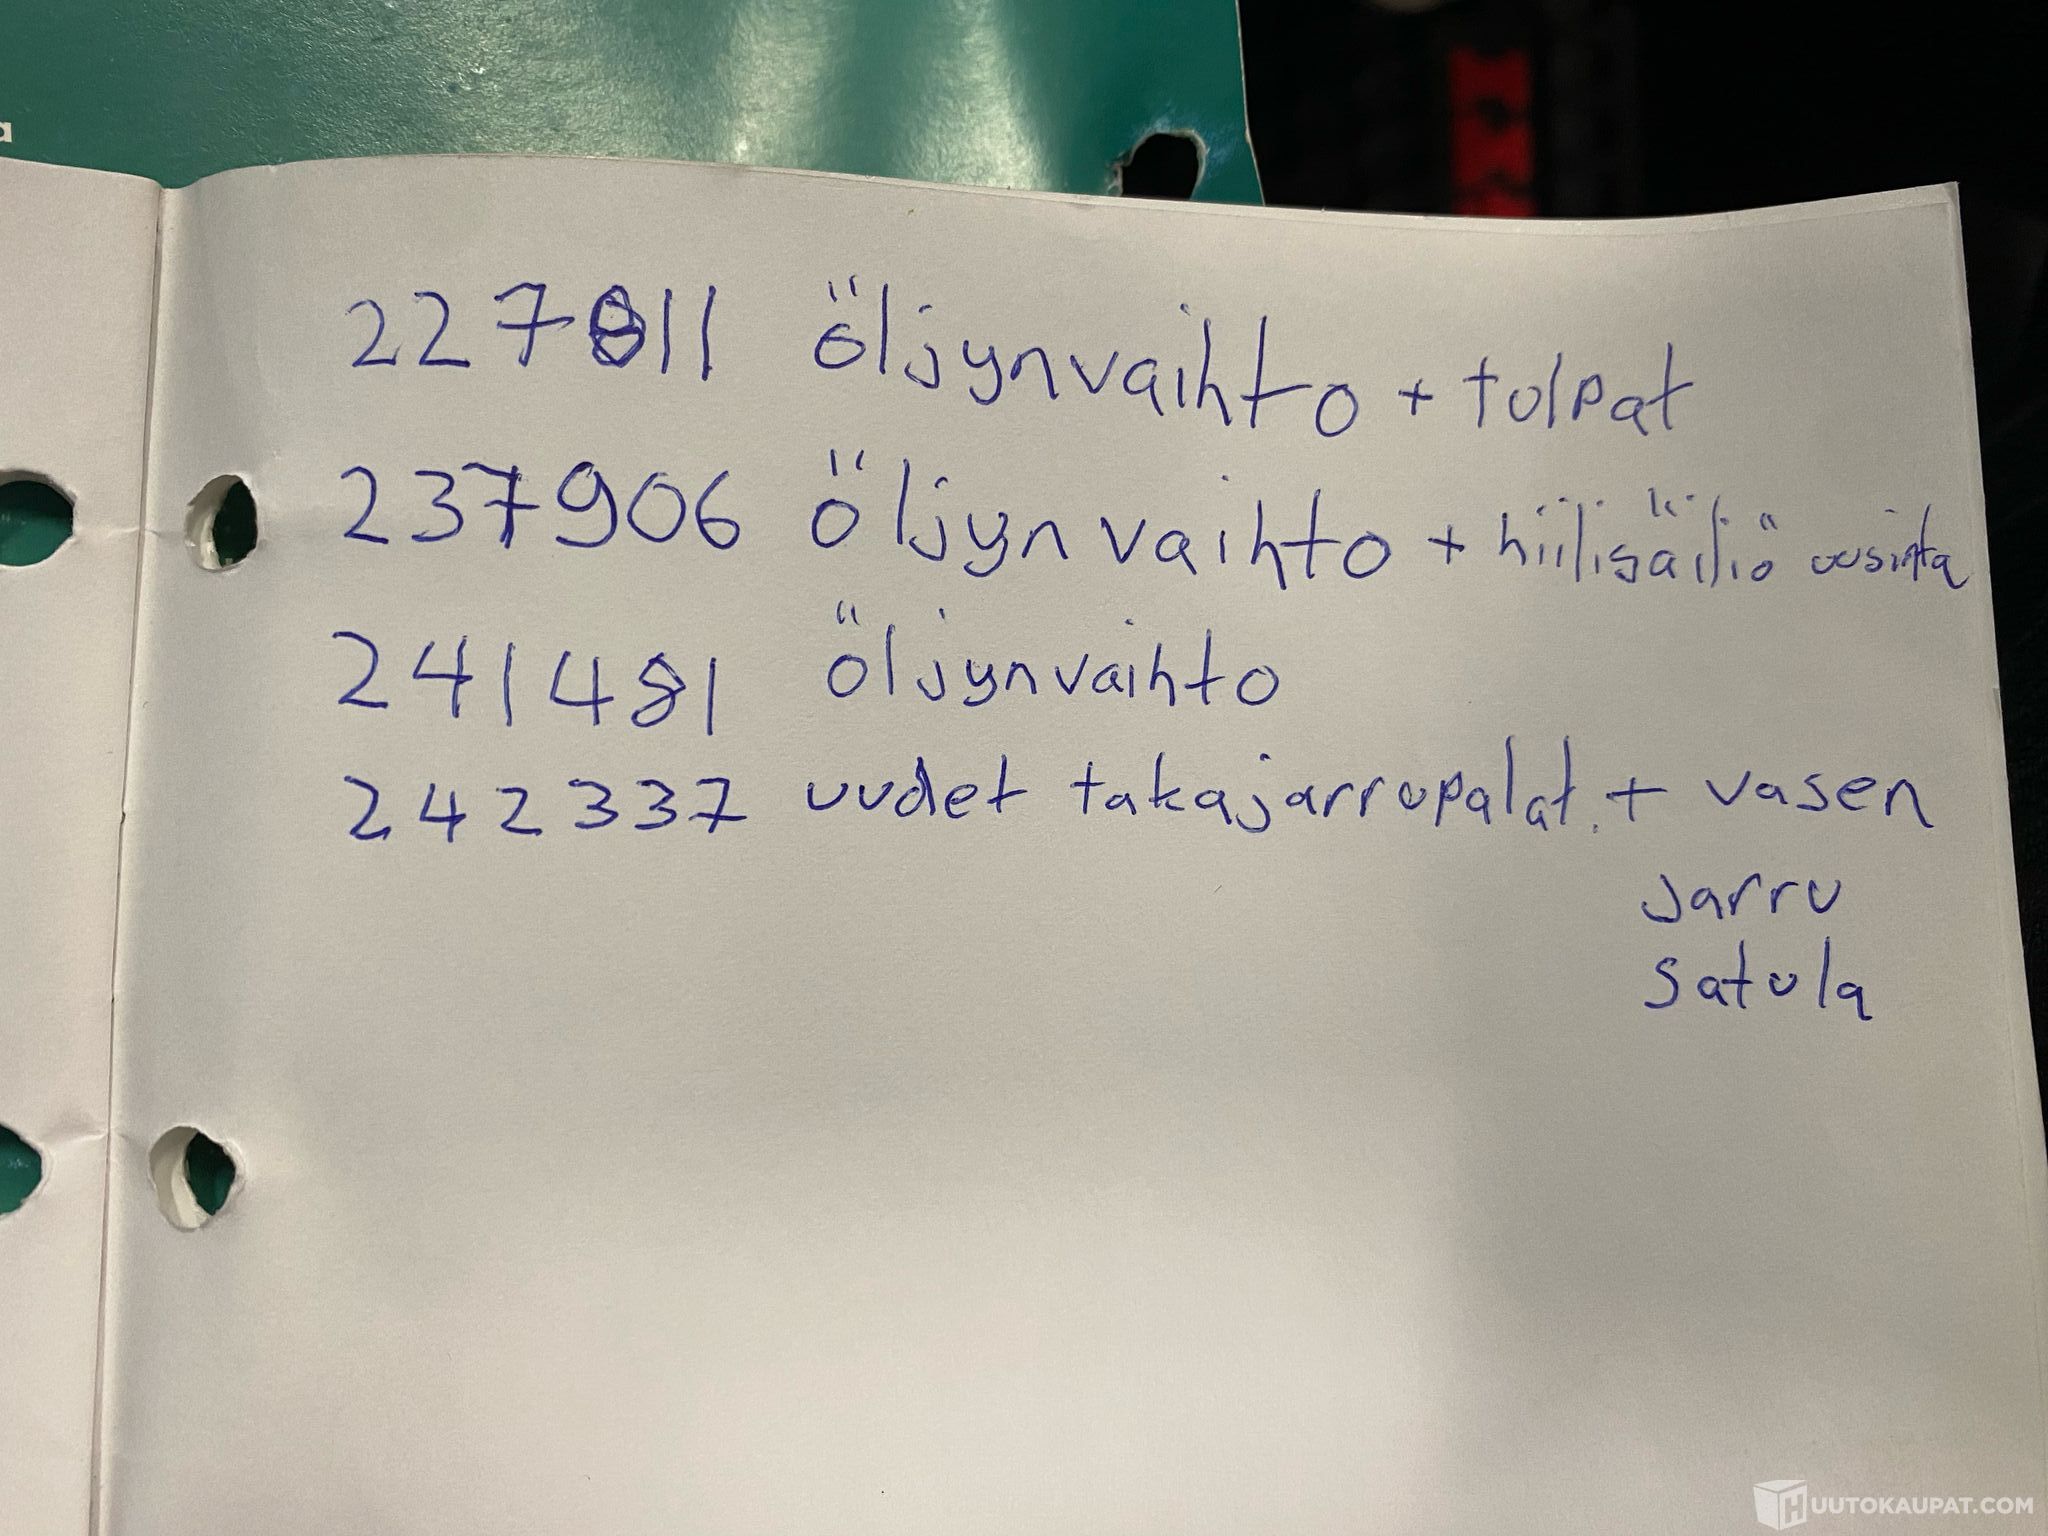 a
227811 öljynvaihto + tolpat
237906 öljynvaihto + hiilisäiliö uusinta
241481 öljynvaihto
242337 uudet takajarrupalat. + vasen
jarru
satula
HUUTOKAUPAT.COM